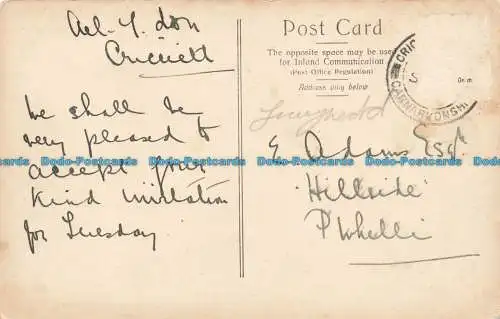 Ael-y-don
Criccieth
We shall be
very pleased to
accept your
kind invitation
for Tuesday
Post Card
The opposite space may be used
for Inland Communication
(Post Office Regulation)
Address only below
E Adams Esqr
Hillside
Pwhelli
CRIC
CARNARVONSHI
Dodo-Postcards Dodo-Postcards Dodo-Postcards Dodo-Postcards